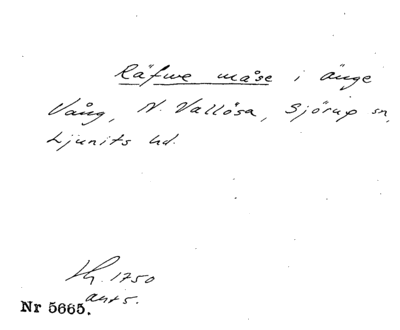 Räfwe måse i änge
Vång, N. Vallösa, Sjörup sn,
Ljunits hd.
Kh. 1750
ant 5.
Nr 5665.